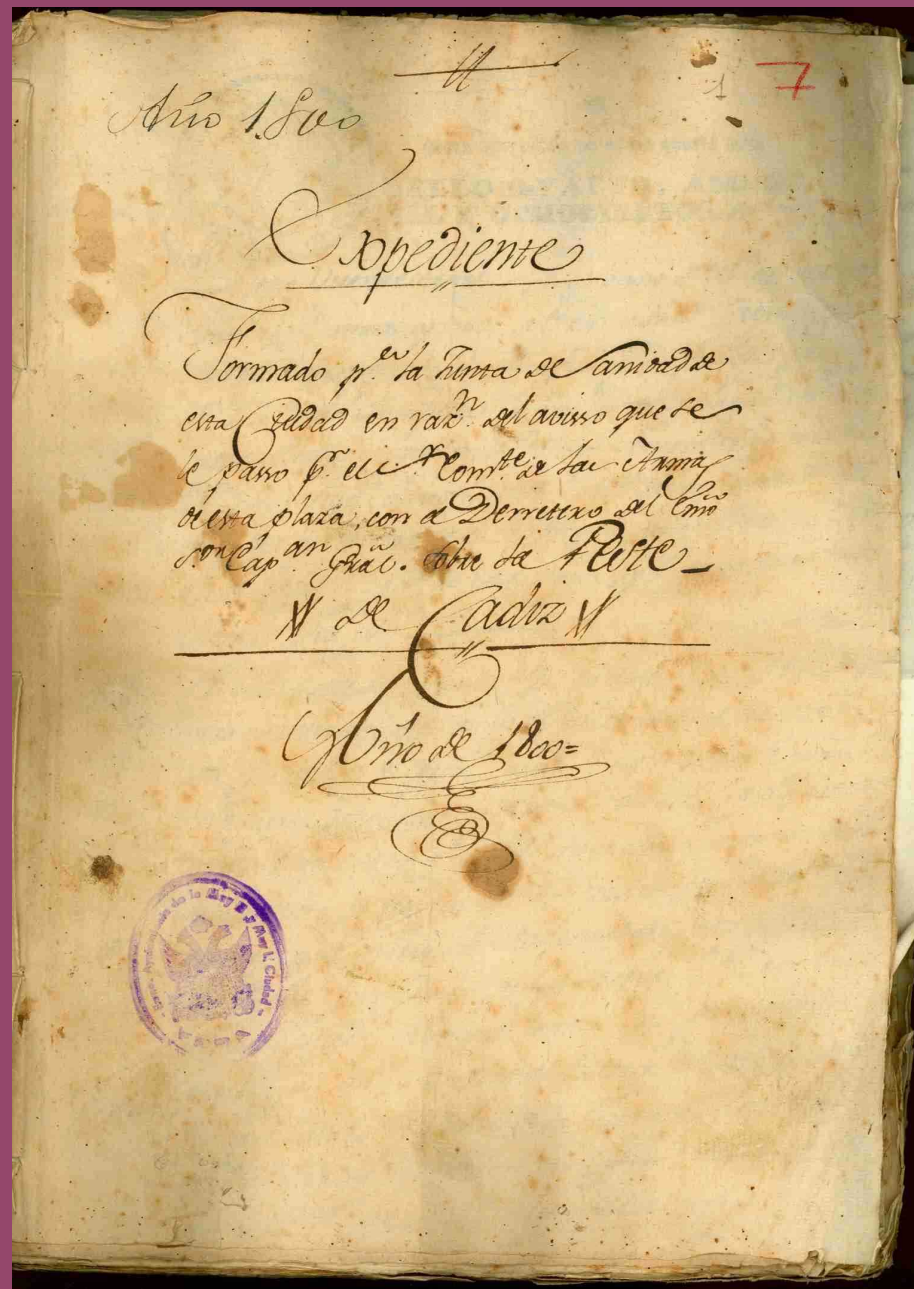 1 7
Año 1800
Expediente
Formado pr. la Junta de Sanidad de
esta Ciudad en razn. del aviso que se
le passo pr. el Sr. Comte. de las Armas
de esta plaza, con a Derretero del Exmo
Sor. Capan. Gral. sobre la Peste
de Cadiz
Año de 1800=
Ayuntamiento de la Muy N. y Muy L. Ciudad